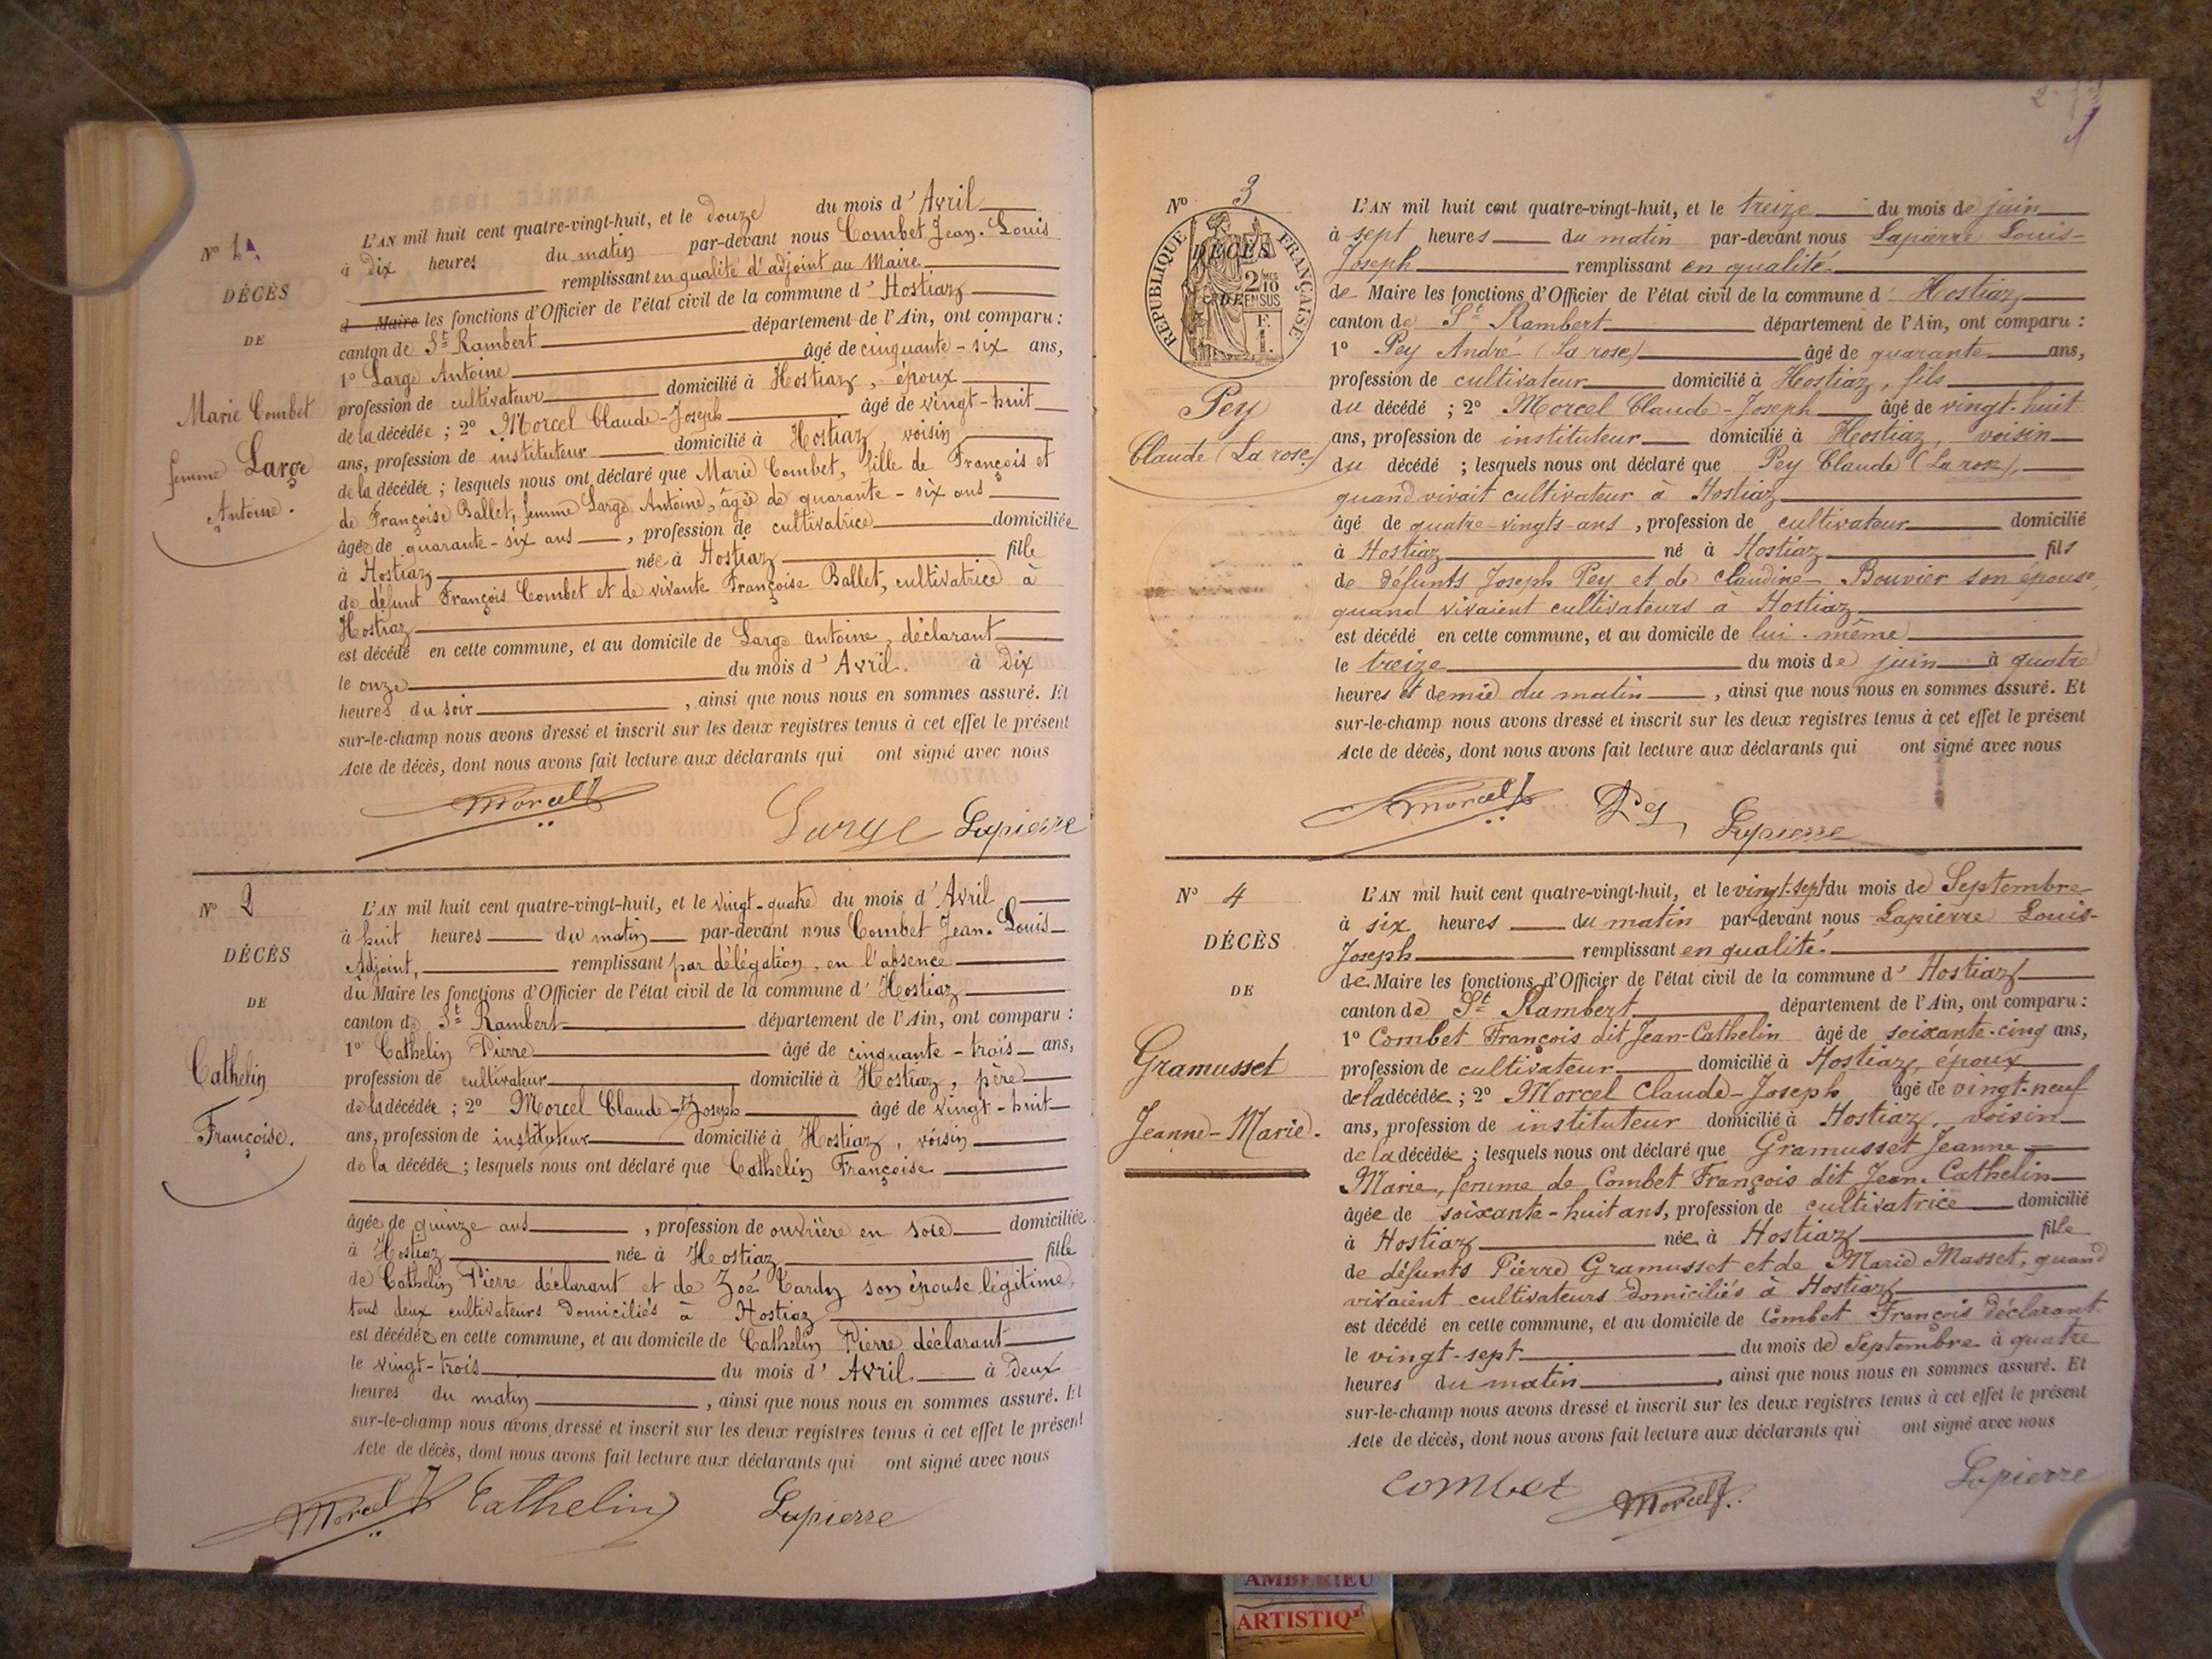 N° 1
DÉCÈS
DE
Marie Combet
femme Large
Antoine.
L'AN mil huit cent quatre-vingt-huit, et le douze du mois d'Avril
à Dix heures du matin par-devant nous Combet Jean-Louis
remplissant en qualité d'adjoint au Maire
d Maire les fonctions d'Officier de l'état civil de la commune d'Hostiaz
canton de St Rambert département de l'Ain, ont comparu :
1° Large Antoine âgé de cinquante-six ans,
profession de cultivateur domicilié à Hostiaz, époux
de la décédée ; 2° Morcel Claude-Joseph âgé de vingt-huit
ans, profession de instituteur domicilié à Hostiaz, voisin
de la décédée ; lesquels nous ont déclaré que Marie Combet, fille de François et
de Françoise Ballet, femme Large Antoine, âgée de quarante-six ans
âgée de quarante-six ans, profession de cultivatrice domiciliée
à Hostiaz née à Hostiaz fille
de défunt François Combet et de vivante Françoise Ballet, cultivatrice à
Hostiaz
est décédé en cette commune, et au domicile de Large Antoine, déclarant
le onze du mois d'Avril. à Dix
heures du soir, ainsi que nous nous en sommes assuré. Et
sur-le-champ nous avons dressé et inscrit sur les deux registres tenus à cet effet le présent
Acte de décès, dont nous avons fait lecture aux déclarants qui ont signé avec nous
Morcel Large Lapierre
N° 2
DÉCÈS
DE
Cathelin
Françoise.
L'AN mil huit cent quatre-vingt-huit, et le vingt-quatre du mois d'Avril
à huit heures du matin par-devant nous Combet Jean-Louis
Adjoint, remplissant par délégation, en l'absence
du Maire les fonctions d'Officier de l'état civil de la commune d'Hostiaz
canton de St Rambert département de l'Ain, ont comparu :
1° Cathelin Pierre âgé de cinquante-trois ans,
profession de cultivateur domicilié à Hostiaz, père
de la décédée ; 2° Morcel Claude-Joseph âgé de vingt-huit
ans, profession de instituteur domicilié à Hostiaz, voisin
de la décédée ; lesquels nous ont déclaré que Cathelin Françoise
âgée de quinze ans, profession de ouvrière en soie domiciliée
à Hostiaz née à Hostiaz fille
de Cathelin Pierre déclarant et de Zoé Tardy son épouse légitime,
tous deux cultivateurs domiciliés à Hostiaz
est décédée en cette commune, et au domicile de Cathelin Pierre déclarant
le vingt-trois du mois d'Avril. à Deux
heures du matin, ainsi que nous nous en sommes assuré. Et
sur-le-champ nous avons dressé et inscrit sur les deux registres tenus à cet effet le présent
Acte de décès, dont nous avons fait lecture aux déclarants qui ont signé avec nous
Morcel Cathelin Lapierre
N° 3
RÉPUBLIQUE FRANÇAISE
DÉCÈS
2/10 MES
DE EN SUS
F. 1.
Pey
Claude (La rose)
L'AN mil huit cent quatre-vingt-huit, et le treize du mois de juin
à sept heures du matin par-devant nous Lapierre Louis-
Joseph remplissant en qualité
de Maire les fonctions d'Officier de l'état civil de la commune d'Hostiaz
canton de St Rambert département de l'Ain, ont comparu :
1° Pey André (La rose) âgé de quarante ans,
profession de cultivateur domicilié à Hostiaz, fils
du décédé ; 2° Morcel Claude-Joseph âgé de vingt-huit
ans, profession de instituteur domicilié à Hostiaz, voisin
du décédé ; lesquels nous ont déclaré que Pey Claude (La rose),
quand vivait cultivateur à Hostiaz
âgé de quatre-vingts-ans, profession de cultivateur domicilié
à Hostiaz né à Hostiaz fils
de défunts Joseph Pey et de Claudine Bouvier son épouse,
quand vivaient cultivateurs à Hostiaz
est décédé en cette commune, et au domicile de lui-même
le treize du mois de juin à quatre
heures et demie du matin, ainsi que nous nous en sommes assuré. Et
sur-le-champ nous avons dressé et inscrit sur les deux registres tenus à cet effet le présent
Acte de décès, dont nous avons fait lecture aux déclarants qui ont signé avec nous
Morcel Pey Lapierre
N° 4
DÉCÈS
DE
Gramusset
Jeanne-Marie.
L'AN mil huit cent quatre-vingt-huit, et le vingt-sept du mois de Septembre
à six heures du matin par-devant nous Lapierre Louis-
Joseph remplissant en qualité
de Maire les fonctions d'Officier de l'état civil de la commune d'Hostiaz
canton de St Rambert département de l'Ain, ont comparu :
1° Combet François dit Jean-Cathelin âgé de soixante-cinq ans,
profession de cultivateur domicilié à Hostiaz, époux
de la décédée ; 2° Morcel Claude-Joseph âgé de vingt-neuf
ans, profession de instituteur domicilié à Hostiaz, voisin
de la décédée ; lesquels nous ont déclaré que Gramusset Jeanne
Marie, femme de Combet François dit Jean-Cathelin
âgée de soixante-huit ans, profession de cultivatrice domicilié
à Hostiaz née à Hostiaz fille
de défunts Pierre Gramusset et de Marie Masset, quand
vivaient cultivateurs domiciliés à Hostiaz
est décédé en cette commune, et au domicile de Combet François déclarant
le vingt-sept du mois de Septembre à quatre
heures du matin, ainsi que nous nous en sommes assuré. Et
sur-le-champ nous avons dressé et inscrit sur les deux registres tenus à cet effet le présent
Acte de décès, dont nous avons fait lecture aux déclarants qui ont signé avec nous
Combet Morcel Lapierre
AMBERIEU
ARTISTIQ